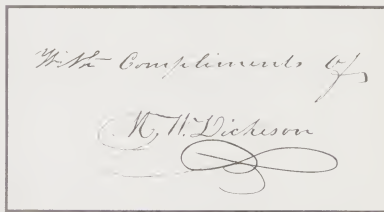 With Compliments of
M. W. Dickeson